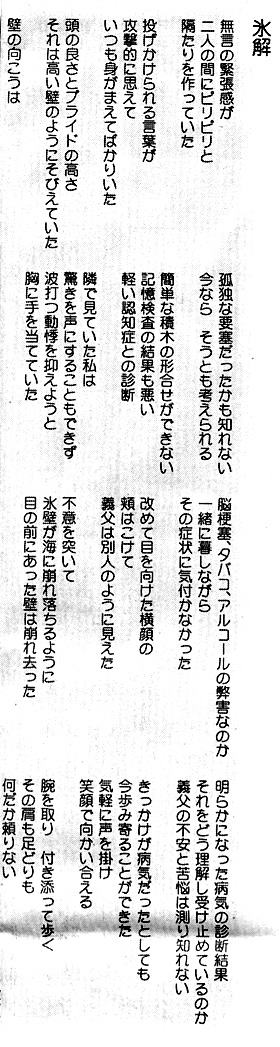 氷解
無言の緊張感が
二人の間にピリピリと
隔たりを作っていた
投げかけられる言葉が
攻撃的に思えて
いつも身がまえてばかりいた
頭の良さとプライドの高さ
それは高い壁のようにそびえていた
壁の向こうは
孤独な要塞だったかも知れない
今なら　そうとも考えられる
簡単な積木の形合せができない
記憶検査の結果も悪い
軽い認知症との診断
隣で見ていた私は
驚きを声にすることもできず
波打つ動悸を抑えようと
胸に手を当てていた
脳梗塞、タバコ、アルコールの弊害なのか
一緒に暮しながら
その症状に気付かなかった
改めて目を向けた横顔の
頬はこけて
義父は別人のように見えた
不意を突いて
氷壁が海に崩れ落ちるように
目の前にあった壁は崩れ去った
明らかになった病気の診断結果
それをどう理解し受け止めているのか
義父の不安と苦悩は測り知れない
きっかけが病気だったとしても
今歩み寄ることができた
気軽に声を掛け
笑顔で向かい合える
腕を取り　付き添って歩く
その肩も足どりも
何だか頼りない